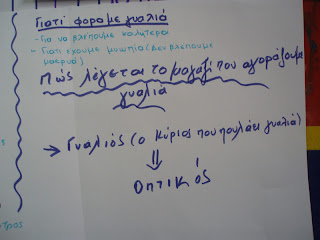 Γιατί φοράμε γυαλιά
- Για να βλέπουμε καλύτερα
- Γιατί έχουμε μυωπία (δεν βλέπουμε
μακριά)
Πώς λέγεται το μαγαζί που αγοράζουμε
γυαλιά
→ Γυαλιός (ο κύριος που πουλάει γυαλιά)
⇓
Οπτικός
τρος